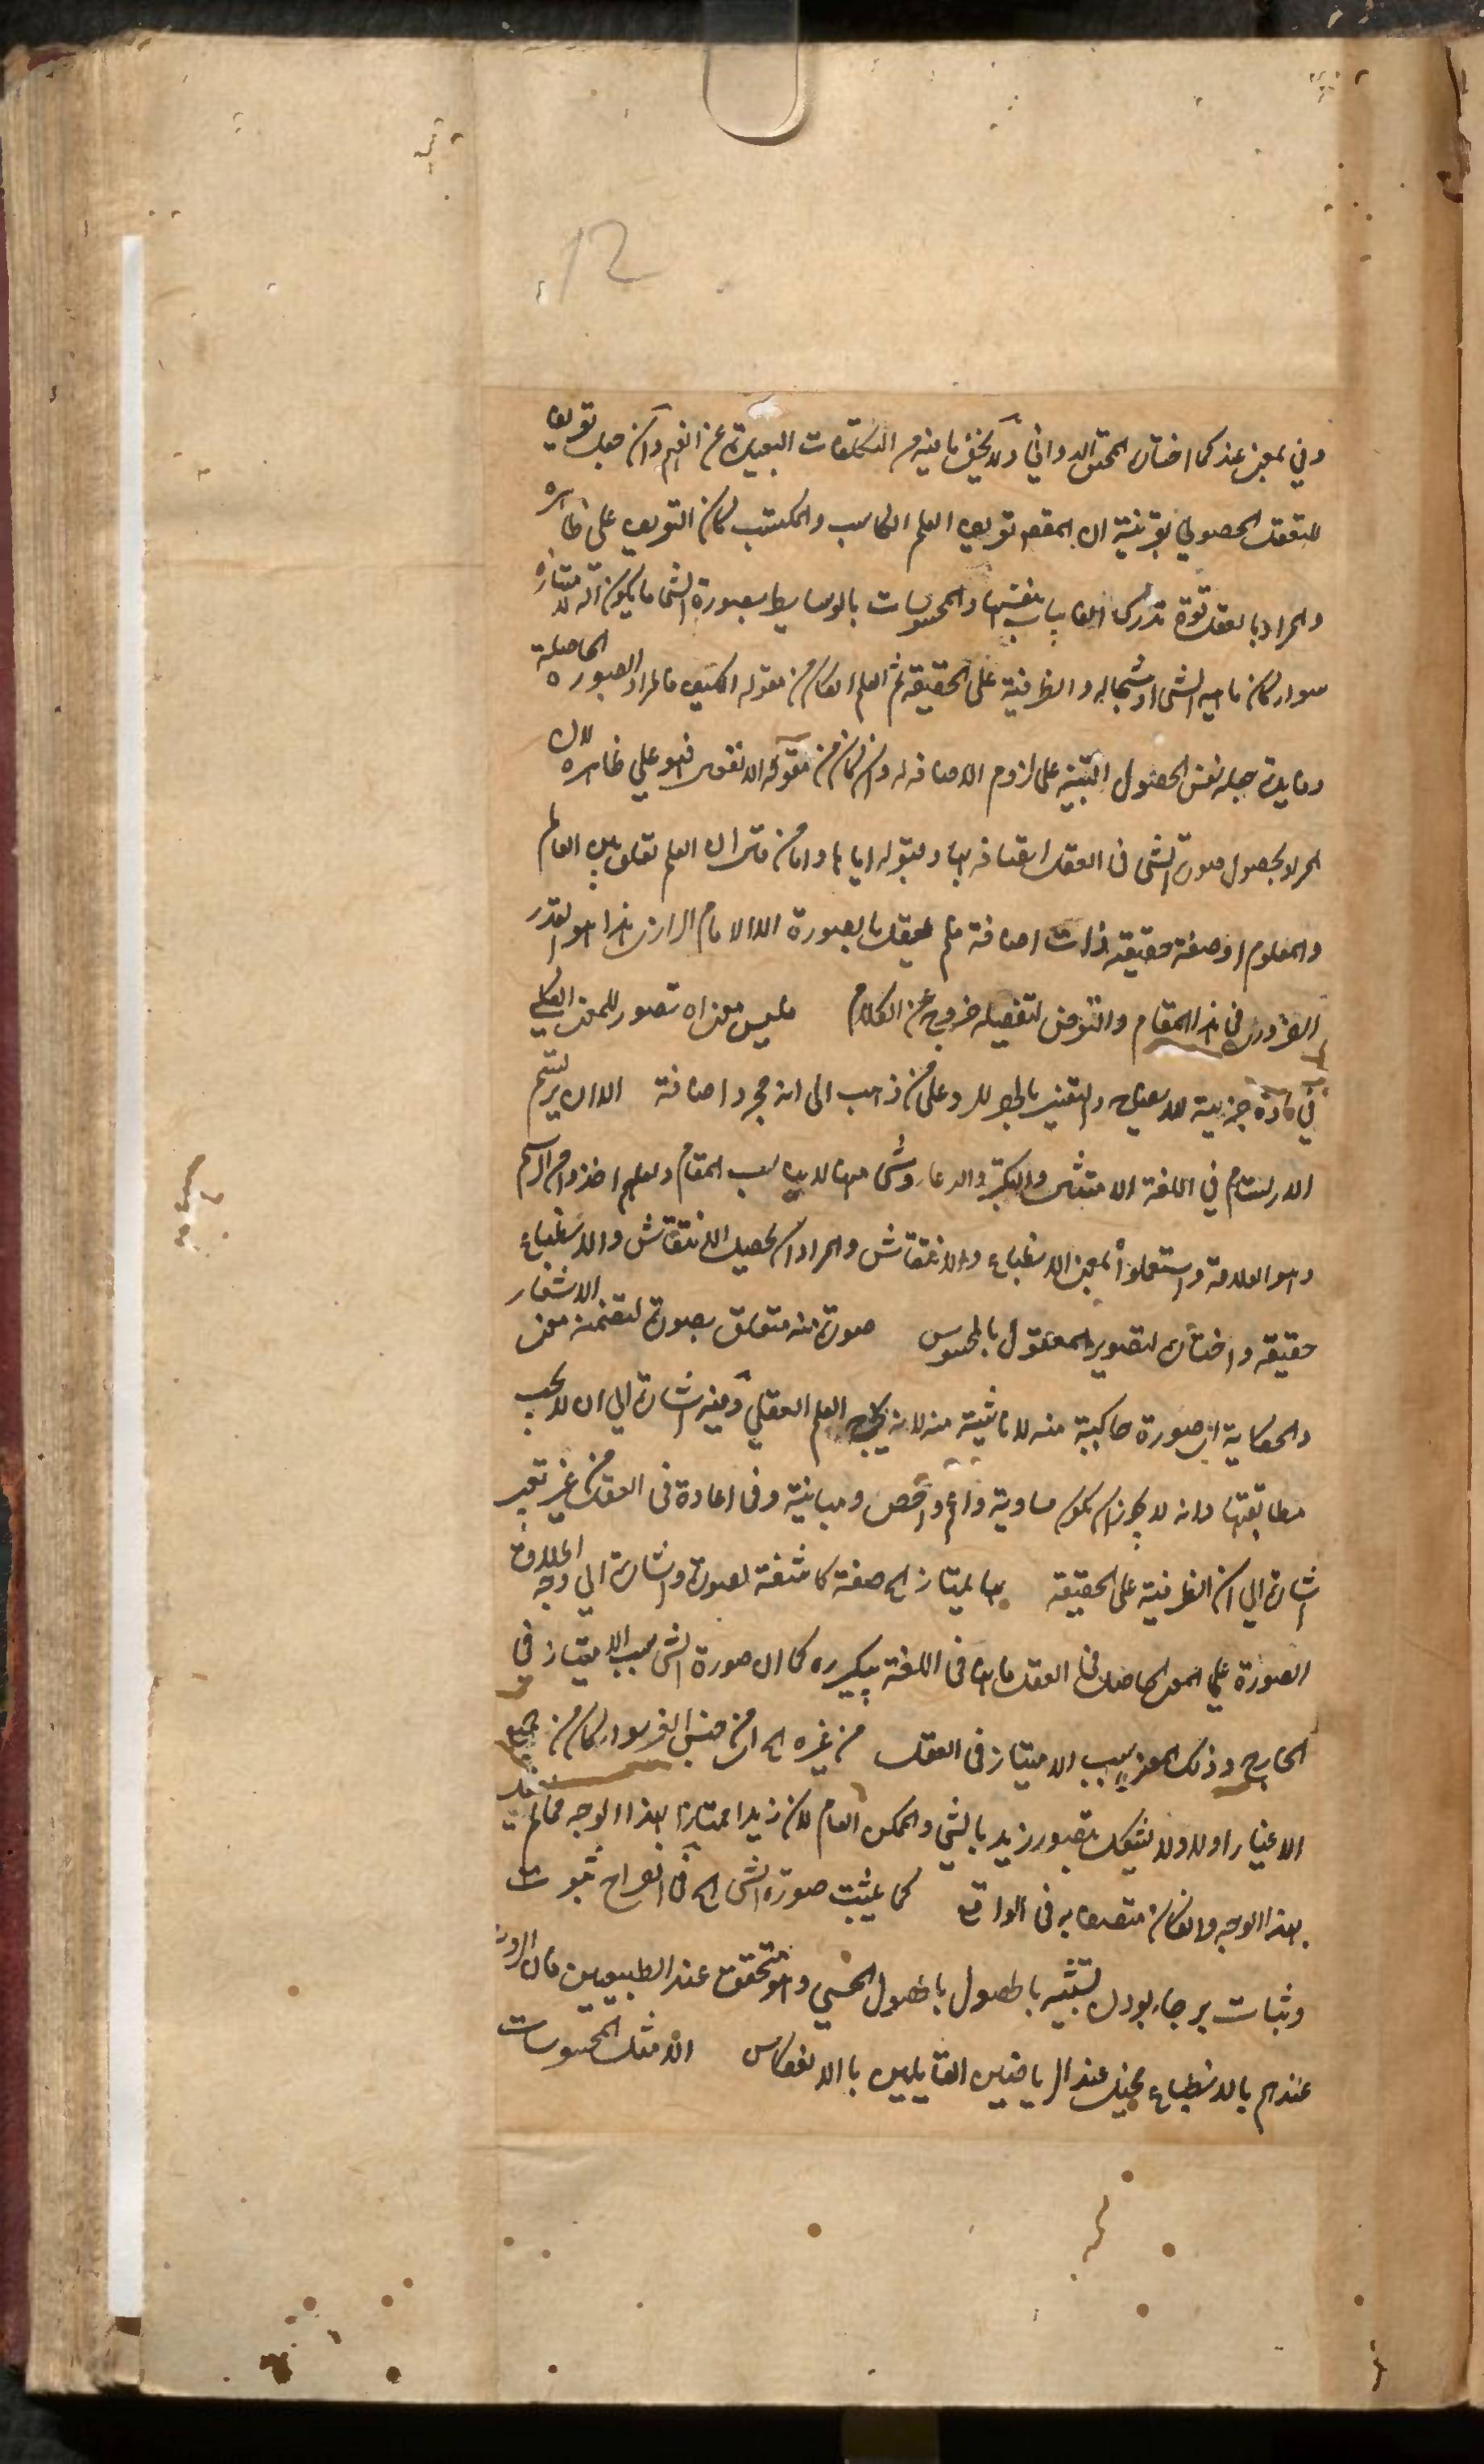 12
وفي بمعنى عند كما اختاره المحقق الدواني ولا يخفى ما فيه من التكلفات البعيدة عن الفهم وان جعل تعريفا
للتعقل الحصولي بقرينة ان المقصود تعريف العلم الكاسب والمكتسب كان التعريف على ظاهره
والمراد بالعقل قوة تدرك الغايبات بنفسها والمحسوسات بالوسايط وبصورة الشئ ما يكون آلة لامتيازه
سواء كان ماهية الشئ او شجا له والظرفية على الحقيقة ثم العلم ان كان من مقولة الكيف فالمراد الصورة الحاصلة
وفايدة جعله نفس الحصول التنبيه على لزوم الاضافة له وان كان من مقولة الانفعال فهو على ظاهره لان
المراد بحصول صورة الشئ في العقل اتصافه بها وقبوله اياها واما من قال ان العلم تعلق بين العالم
والمعلوم او صفة حقيقة ذات اضافة فلم يقل بالصورة الا الامام الرازي هذا هو القدر
الضروري في هذا المقام والتعرض لتفصيله خروج عن الكلام فليس معناه تصور للمعنى الكلي
في مادة جزئية للايضاح والتفسير بالجملة للرد على من ذهب الى انه مجرد اضافة الا ان يرتسم
الارتسام في اللغة الامتثال والتكبر والدعاء وشئ منها لا يناسب المقام ولعلهم اخذوا من الرسم
وهو العلامة واستعملوا بمعنى الانطباع والانتقاش والمراد ان يحصل الانتقاش والانطباع
حقيقة واختاره لتصوير المعقول بالمحسوس صورة منه متعلق بصورة لتضمنه معنى الاشعار
والحكاية اي صورة حاكية منه لا ناشية منه لانه يخرج العلم العقلي وفيه اشارة الى ان لا يجب
مطابقتها وانه لا يجوز ان يكون مساوية واعم واخص ومباينة وفي اعادة في العقل من غير تعبير
اشارة الى ان الظرفية على الحقيقة بها يمتاز الخ صفة كاشفة لصورة واشارة الى وجه اطلاق
الصورة على المعنى الحاصل في العقل فانها في اللغة پيكره كما ان صورة الشئ سبب الامتياز في
الخارج وذلك المعنى سبب الامتياز في العقل من غيره الخ اي من جنس الغير سواء كان من جميع
الاغيار اولا ولا يشكل بتصور زيد بالشئ والممكن العام لان زيدا ممتازا بهذا الوجه عما لم
بهذا الوجه وان كان متصفا به في الواقع كما يثبت صورة الشئ الخ في الصراح ثبوت
وثبات برجاء بودن تشبيه بالحصول بالحصول الحسي وهو متحقق عند الطبيعيين فان الرؤية
عندهم بالانطباع يخيل عند الرياضيين القايلين بالانعكاس الا مثل المحسوسات